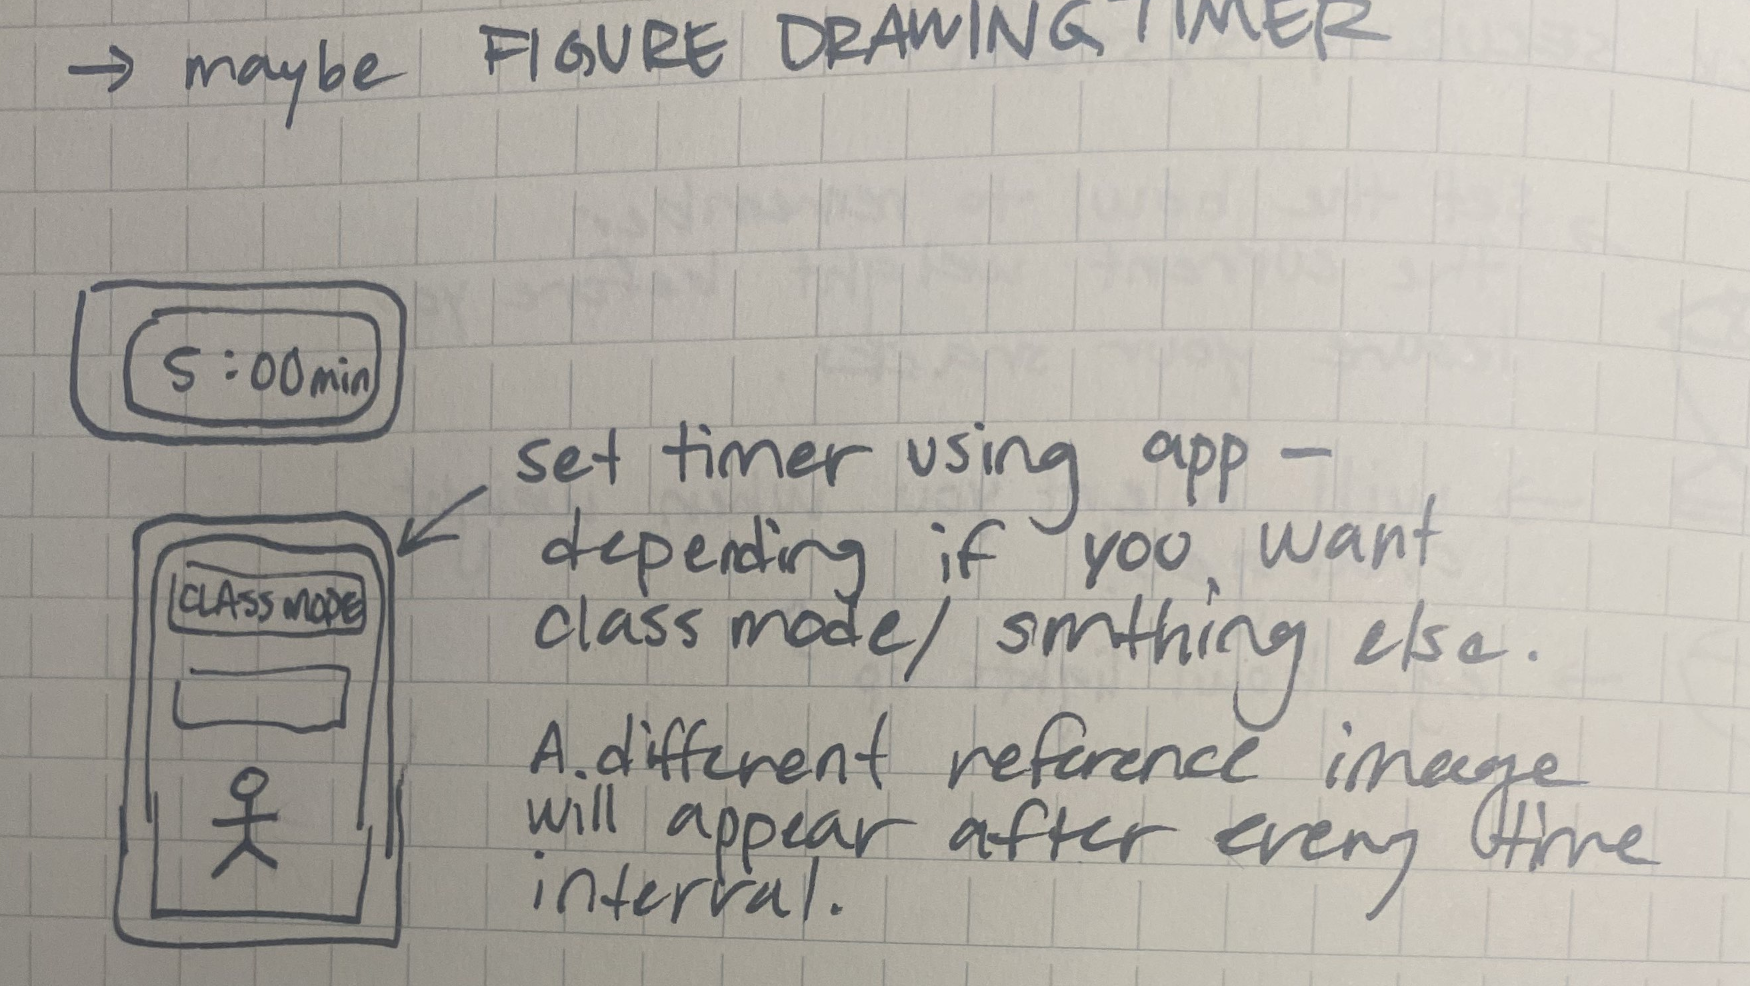 → maybe FIGURE DRAWING TIMER
5:00min
set timer using app -
depending if you want
class mode/ smthing else.
CLASS MODE
A different reference image
will appear after every time
interval.